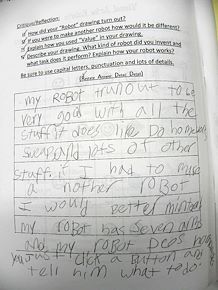 Critique/Reflection:
How did your "Robot" drawing turn out?
If you were to make another robot how would it be different?
Explain how you used "Value" in your drawing.
Describe your drawing. What kind of robot did you invent and
what task does it perform? Explain how your robot works?
Be sure to use capital letters, punctuation and lots of details.
my RoBot trunout to be
very good with all the
stuff it does like Do homework
sweap and lots of other
stuff. if I had to make
a nother roBot
I would better
my roBot has seven arms
and my roBot Does
you Just click a Button and
tell him what to do.